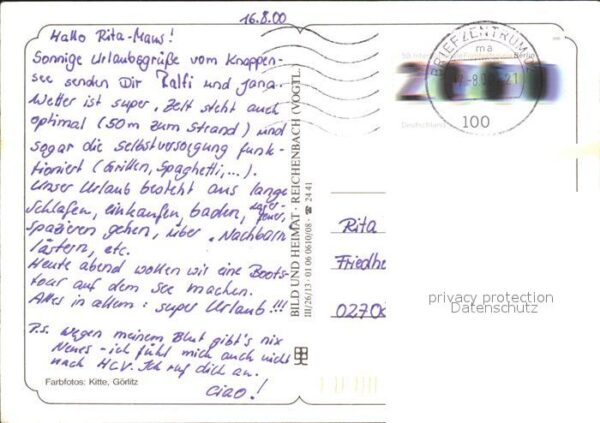 16.8.00
Hallo Rita-Maus!
Sonnige Urlaubsgrüße vom Knappen-
see senden Dir Ralfi und Jana.
Wetter ist super, Zelt steht auch
optimal (50m zum Strand) und
sogar die Selbstversorgung funk-
tioniert (Grillen, Spaghetti,...).
Unser Urlaub besteht aus lange
Schlafen, einkaufen, baden, Lager-
feuer,
Spazieren gehen, über Nachbarn
lästern, etc.
Heute abend wollen wir eine Boots-
tour auf dem See machen.
Alles in allem: super Urlaub!!!
P.S. wegen meinem Blut gibt's nix
Neues - ich fühl mich auch nicht
nach HCV. Ich ruf dich an.
Ciao!
Farbfotos: Kitte, Görlitz
BILD UND HEIMAT · REICHENBACH (VOGTL.)
III/26/13 · 01 06 0610/08 · ☎ 24 41
BRIEFZENTRUM
ma
-8.00-21
100
Berlin
Deutschland
Rita
Friedhe
0270
privacy protection
Datenschutz